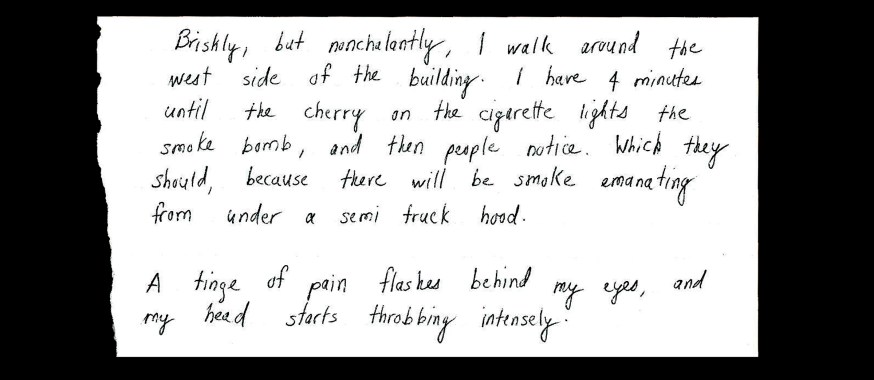 Briskly, but nonchalantly, I walk around the
west side of the building. I have 4 minutes
until the cherry on the cigarette lights the
smoke bomb, and then people notice. Which they
should, because there will be smoke emanating
from under a semi truck hood.
A tinge of pain flashes behind my eyes, and
my head starts throbbing intensely.